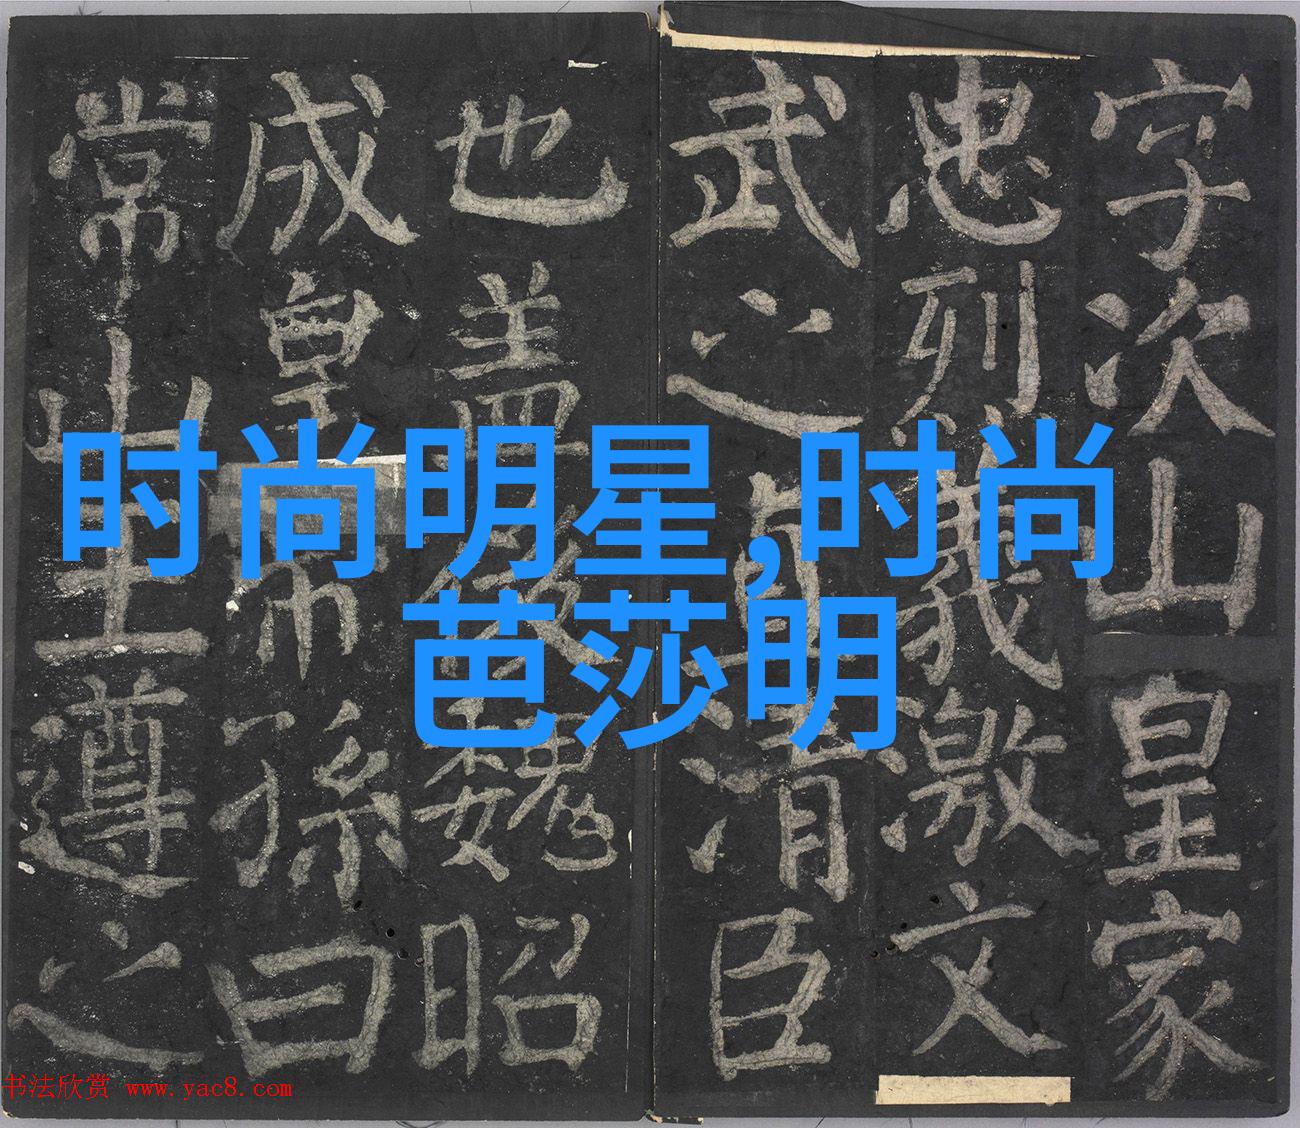 字次山皇家
忠烈義激文
武之貞清臣
也盖後魏昭
成皇帝孫曰
常山王遵之
时尚明星,时尚
芭莎明
书法欣赏 www.yac8.com